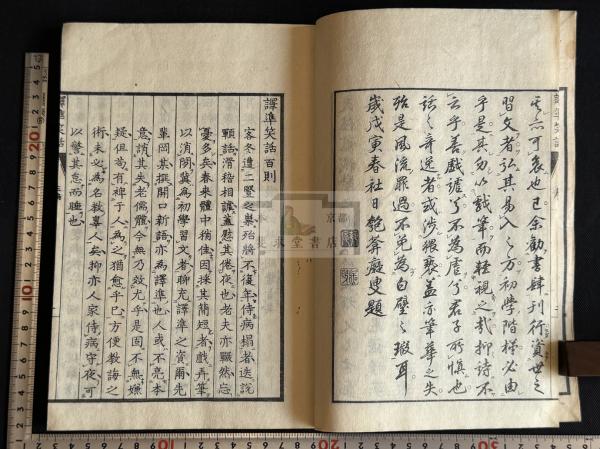 其亦可哀也已余勸書肆刊行資世之
習文者弘其易入之方初學階梯必由
乎是其勿以戲筆而輕視之哉抑詩不
云乎善戲謔兮不為虐兮君子所慎也
話之奇逸者或涉猥褻蓋示筆華之失
殆是風流罪過不免為白璧之瑕耳
歲戊寅春社日 匏菴癡叟題
譯準笑話百則
客冬遭二豎之祟殆將不復年侍病掃者迭說
顆話滑稽相謔蓋慰其倦夜也老夫亦囅然忘
憂多矣春來體中稍佳因採其簡短者戲弄筆
以消閑冀為初學習文者聊充譯準之資爾先
輩岡其撰開口新語固為譯準也人或不亮本
意誚其失老儒體今無乃效尤乎是固不無嫌
疑但苟有裨于人為之猶愈乎已方便教誨之
術未必為名教辜人矣抑亦人家侍病守夜可
以驚其怠而睡也
譯準笑話
京都
集求堂書店